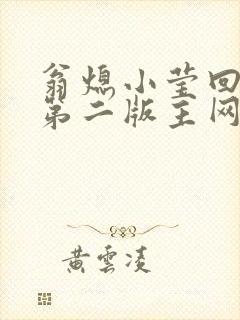 翁熄小莹回
第二版主网
黄雲凌